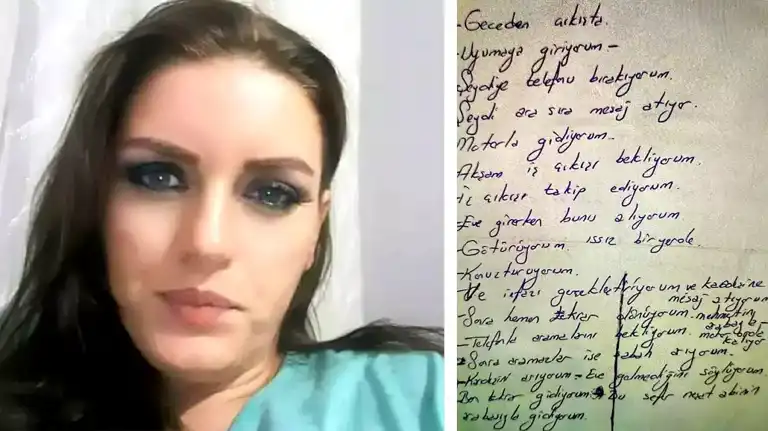 - Geceden çıkışta.
- Uyumaya giriyorum -
- Seydiye telefonu bırakıyorum.
Seydi ara sıra mesaj atıyor.
Motorla gidiyorum.
Akşam iş çıkışı bekliyorum.
iş çıkışı takip ediyorum.
- Eve girerken bunu alıyorum
- Götürüyorum ıssız bir yerde.
- Konuşturuyorum.
- Ve infazı gerçekleştiriyorum ve kardeşine
mesaj atıyorum
- Sonra hemen tekrar dönüyorum.
- Telefonla aramalarını bekliyorum. motor orada
kalıyor
- Sonra aramazlar ise sabah arıyorum.
- Kardeşini arıyorum - Eve gelmediğini söylüyorum.
Ben tekrar gidiyorum - Bu sefer neşet abinin
arabasıyla gidiyorum.